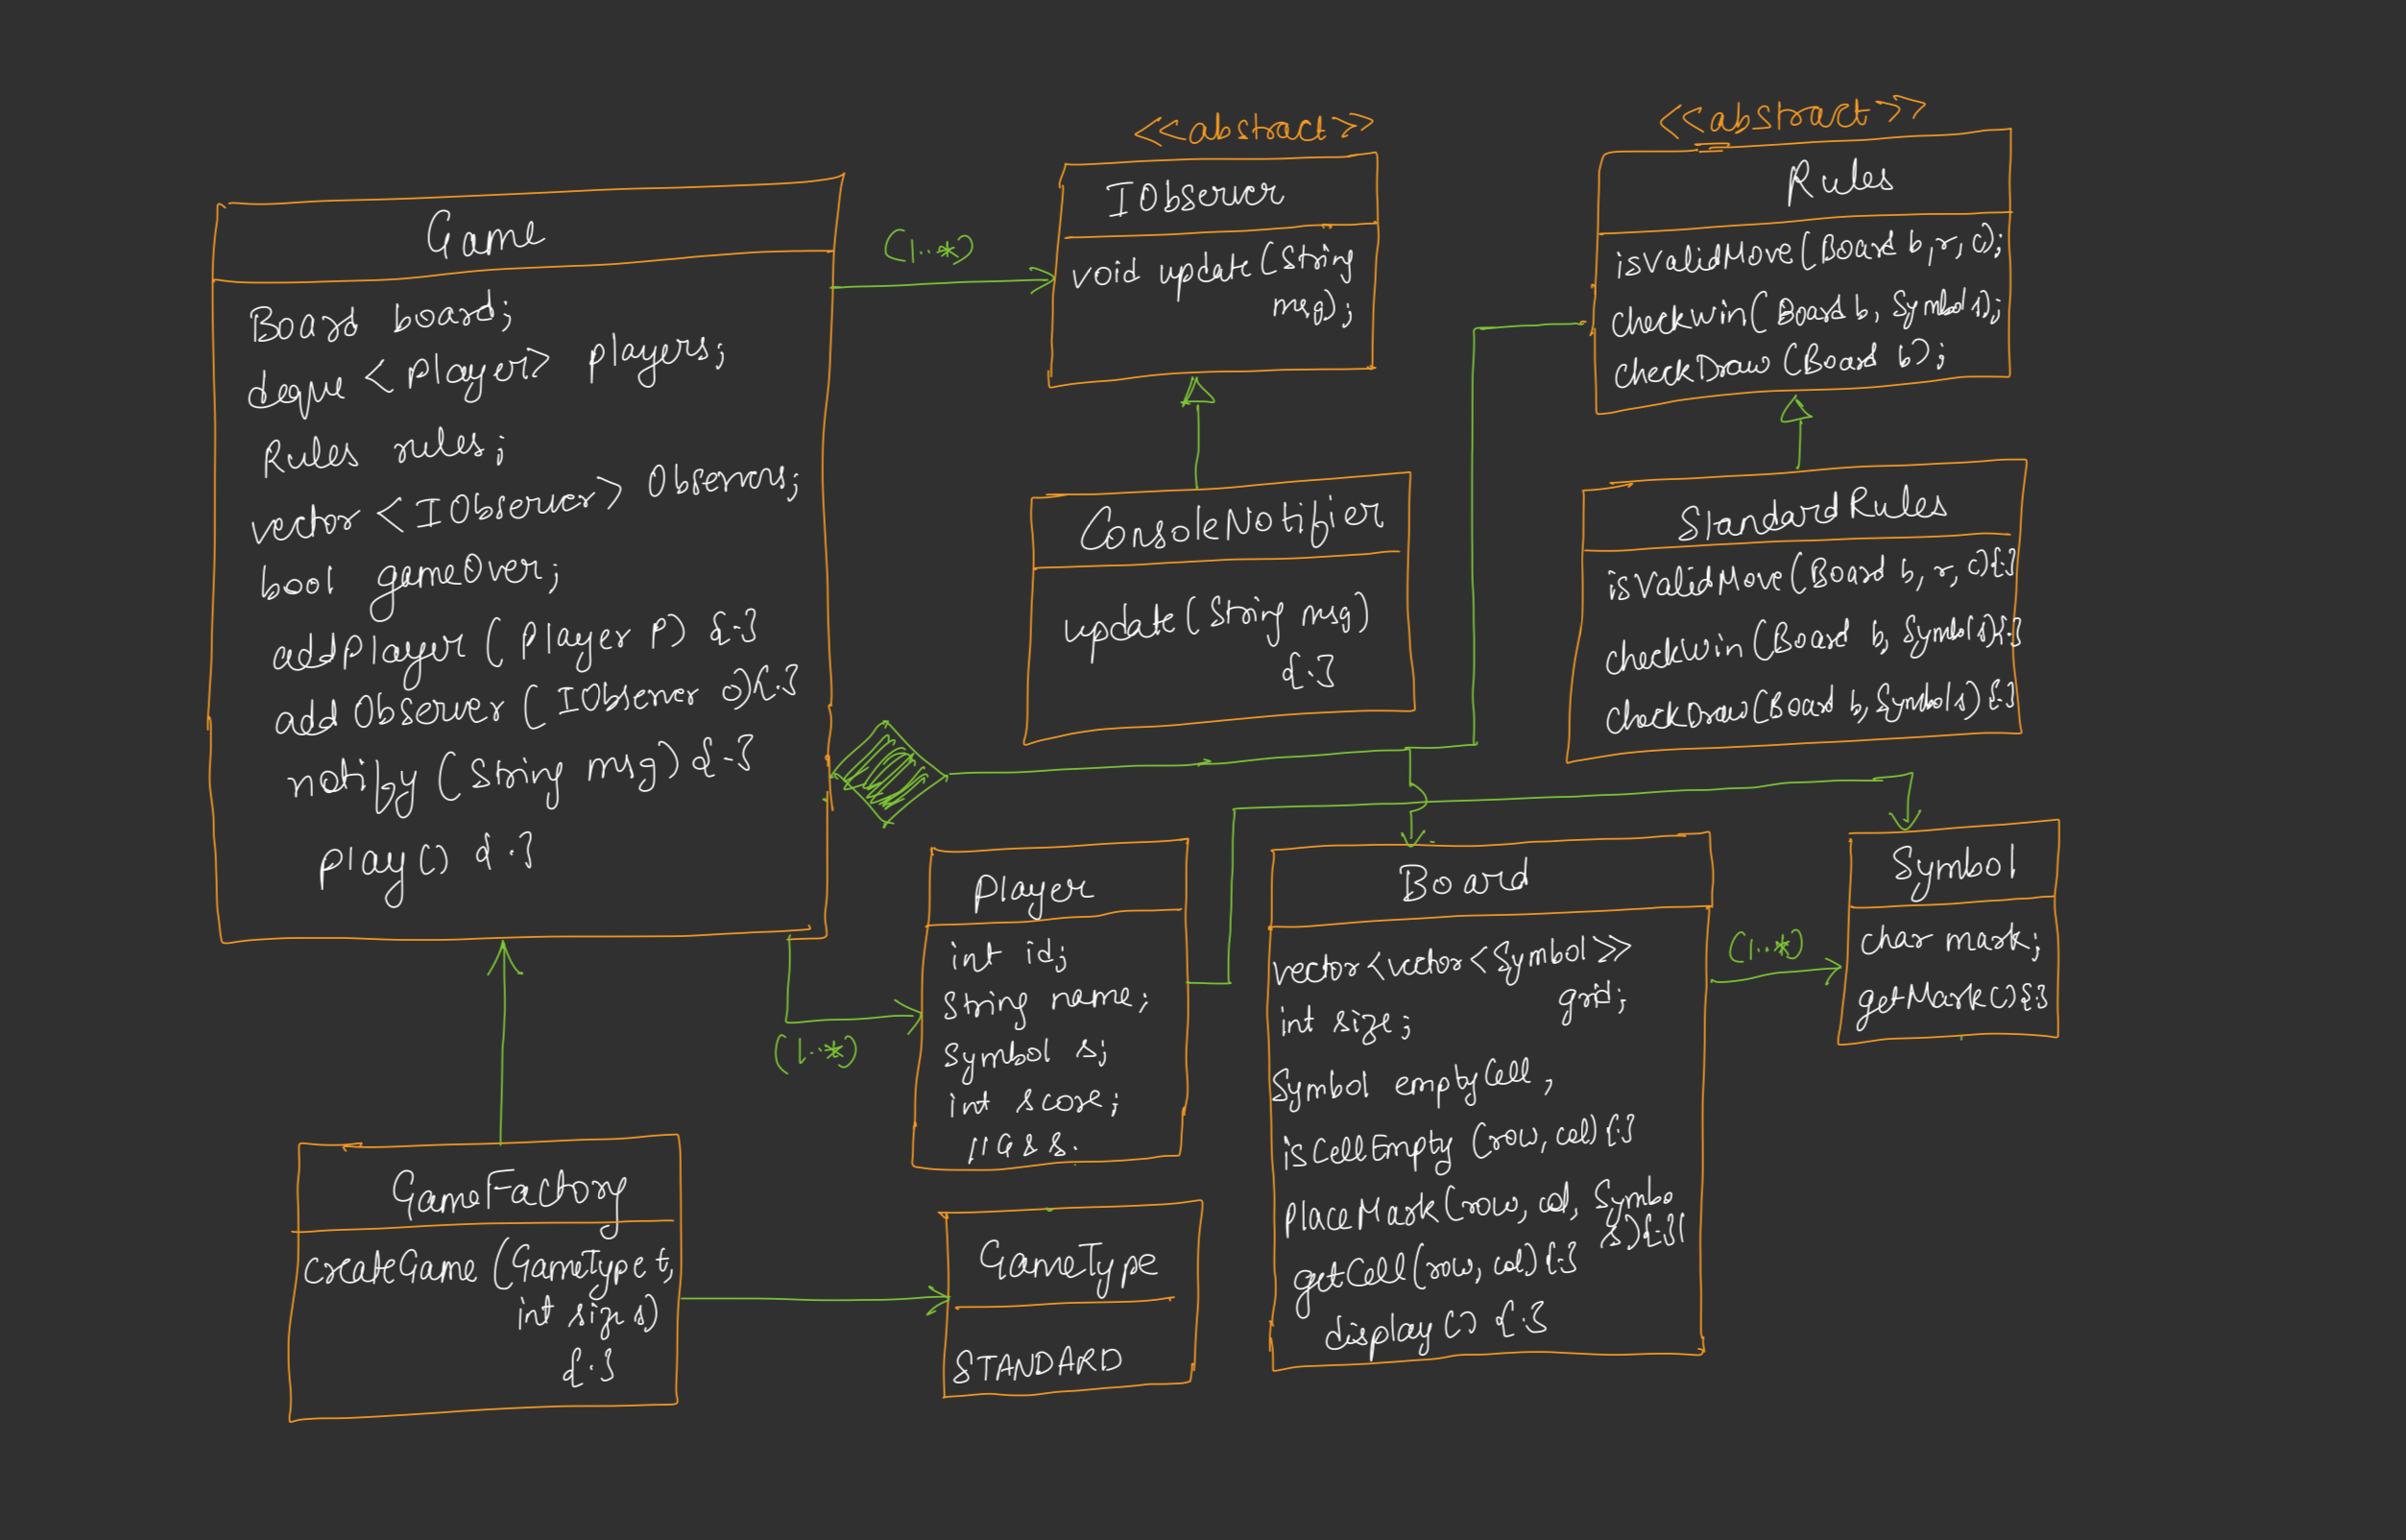 Game
Board board;
deque <Player> players;
Rules rules;
vector <IObserver> Observers;
bool gameOver;
addPlayer (Player P) {.}
add Observer (IObserver o){.}
notify (String msg) {.}
play() {.}
(1..*)
<<abstract>>
IObserver
void update (String
msg);
<<abstract>>
Rules
isValidMove(Board b,r,c);
checkwin(Board b, Symbol s);
checkDraw (Board b);
ConsoleNotifier
update(String msg)
{.}
StandardRules
isValidMove(Board b, r, c){.}
checkWin(Board b, Symbol s){.}
checkDraw(Board b, Symbol s) {.}
Player
int id;
String name;
Symbol s;
int score;
// G & S.
(1..*)
Board
vector<vector<Symbol>>
grid;
int size;
Symbol emptyCell,
isCellEmpty (row, col) {.}
PlaceMark(row, col, Symbo
s){.}
getCell(row, col) {.}
display() {.}
(1..*)
Symbol
char mark;
getMark(){.}
GameFactory
createGame (GameType t,
int size s)
{.}
GameType
STANDARD